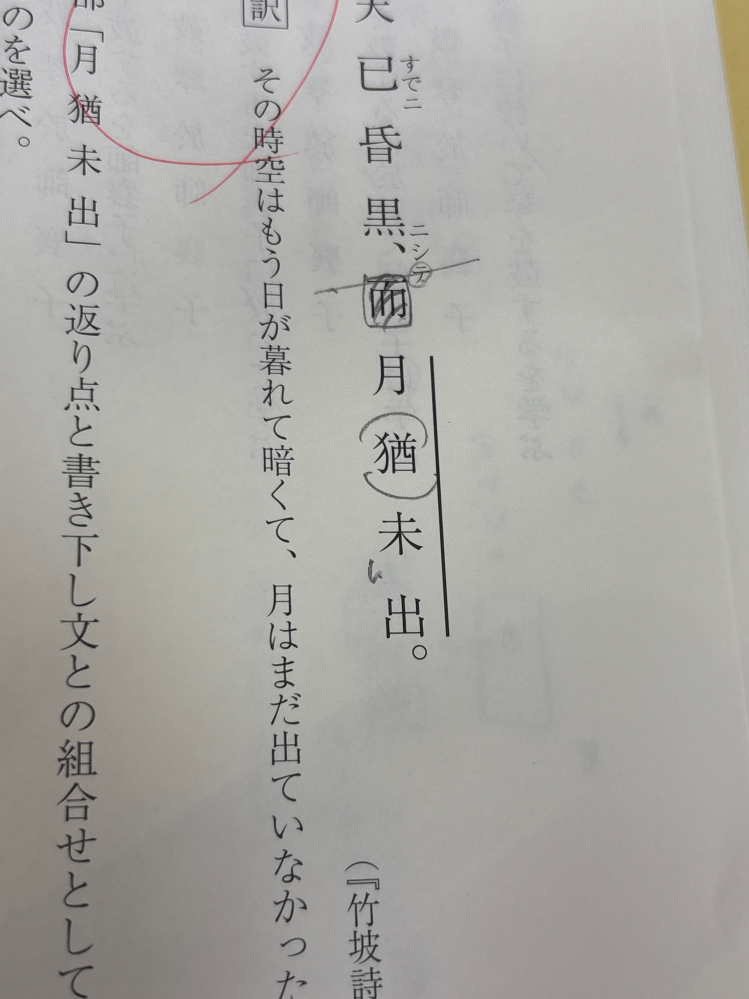 天已昏黒、而月猶未出。
すでニ
ニシテ
レ
(『竹坡詩
訳 その時空はもう日が暮れて暗くて、月はまだ出ていなかった
部「月猶未出」の返り点と書き下し文との組合せとして
のを選べ。